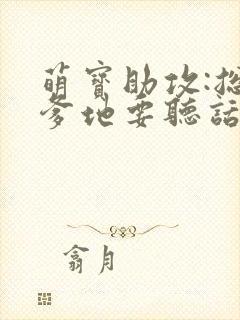 萌寶助攻:總
爹地要聽話
翕月